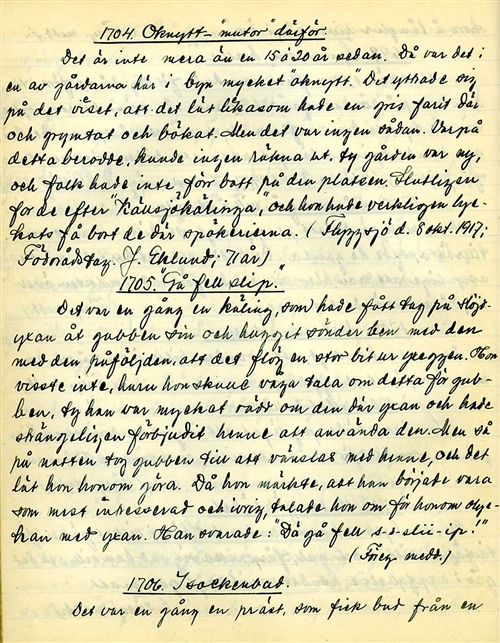 1704. Oknytt - "mutor" därför.
Det är inte mera än en 15 à 20 år sedan. Då var det i
en av gårdarna här i byn mycket "oknytt". Det yttrade sig
på det viset, att det lät likasom hade en gris farit där
och grymtat och bökat. Men det var ingen sådan. Varpå
detta berodde, kunde ingen räkna ut, ty gården var ny,
och folk hade inte förr bott på den platsen. Slutligen
for de efter "Källsjökälinga, och hon hade verkligen lyc-
kats få bort de där spökerierna. ( d. 8 okt. 1917;
Födorådstag. J. Ehlund; 71 år)
1705. "Gå fell slip."
Det var en gång en käling, som hade fått tag på slöjd-
yxan åt gubben sin och huggit sönder ben med den
med den påföljden, att det flög en stor bit ur yxeggen. Hon
visste inte, huru hon skulle våga tala om detta för gub-
ben, ty han var mycket rädd om den där yxan och hade
strängeligen förbjudit henne att använda den. Men så
på natten tog gubben till att vänslas med henne, och det
lät hon honom göra. Då hon märkte, att han började vara
som mest intresserad och ivrig, talade hon om för honom olyc-
kan med yxan. Han svarade: "Dä gå fell s-s-slii-ip."
( medd.)
1706. I sockenbud.
Det var en gång en präst, som fick bud från en